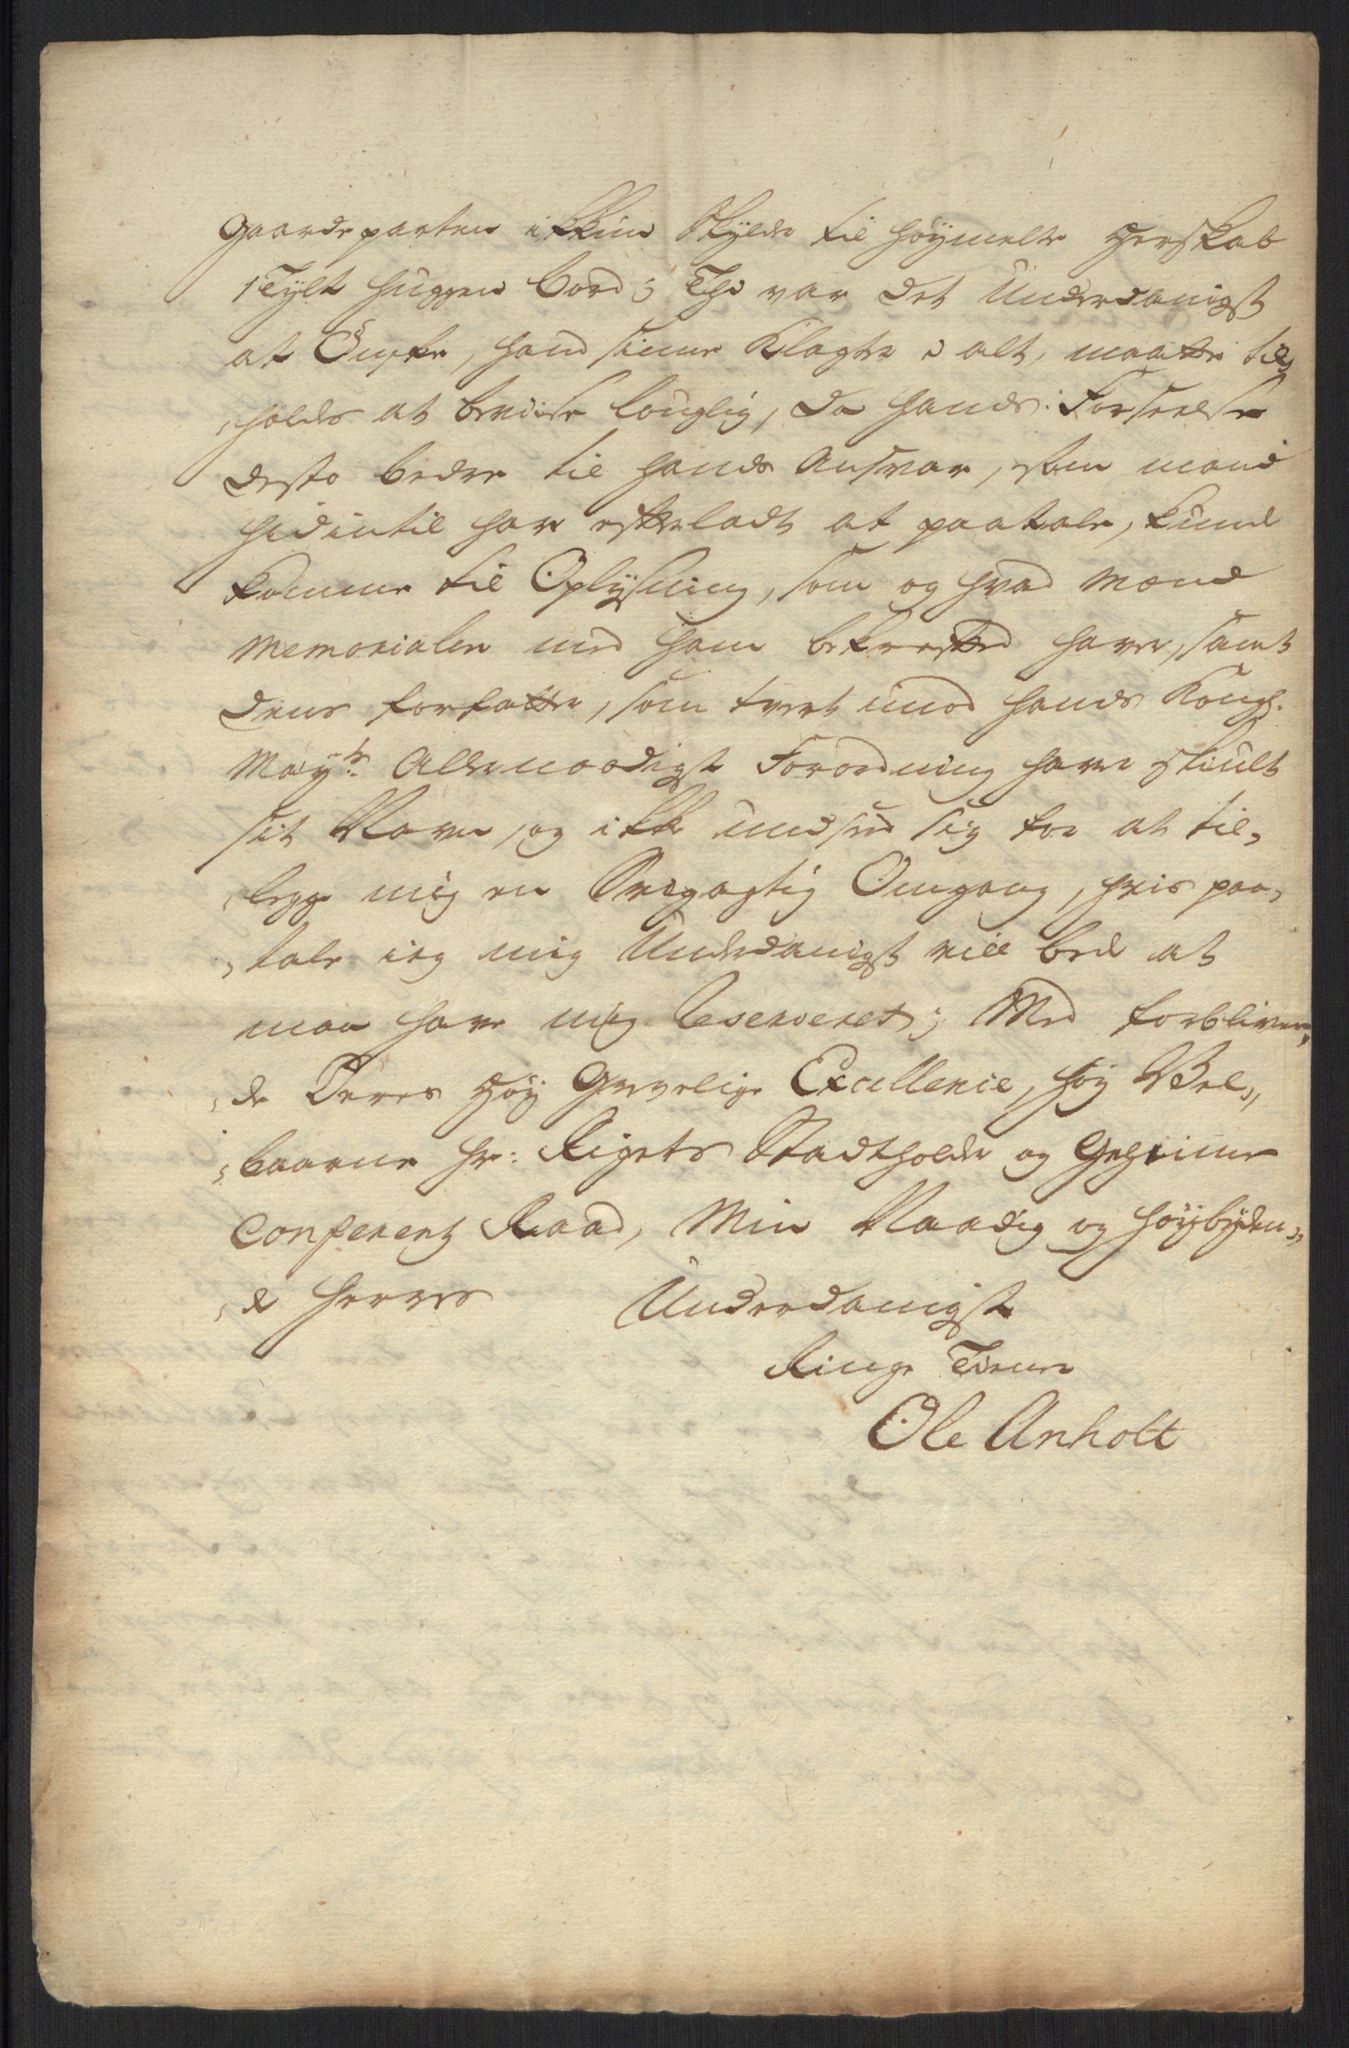 Gaarde parten ikkun skylde til høymelte Herskab
1 Tylt huggen bord; Thi var det Underdanigst
at Önske, hand sinne Klagte i alt, maatte til,,
,,holdes at bevise louglig, da hands Forseelse
desto bedre til hands Ansvar, som mand
hidintil har efterladt at paatale, kunde
komme til Oplysning, som og hvad Mænd
Memorialen med ham bekrefted haver, samt
dens forfatter, som tvert imod hands Kongl:
Mayts: Allernaadigst Forordning haver skiult
sit Navn, og ikke undseed sig for at til,,
,,legge mig en Svigagtig Omgang, hvis paa,,
,,tale ieg mig Underdanigst vill bede at
maa have mig reserveret; Med forbliven,,
,,de Deres Høy Grevelige Excellence, Høy Vel,,
,,baarne Hr: Rigets Stadtholder og Geheime
Conferentz Raad, Min Naadig og Høybyden,,
,,de Herres
Underdanigst
Ringe Tiener
Ole Anholt